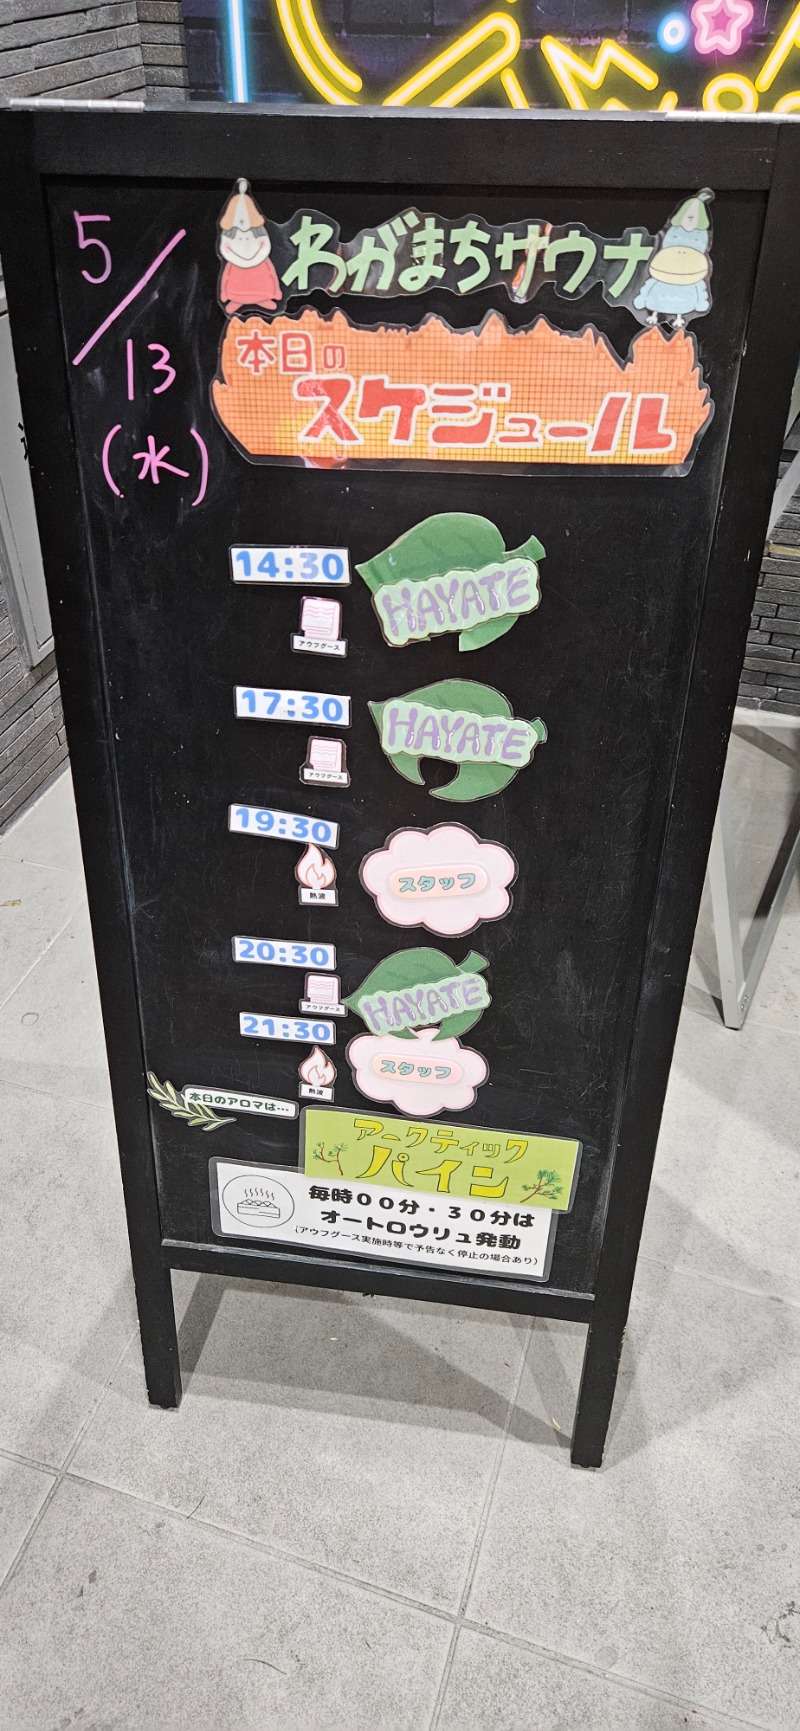 5/13
(水)
わがまちサウナ
本日の
スケジュール
14:30
HAYATE
アウフグース
17:30
HAYATE
アウフグース
19:30
スタッフ
熱波
20:30
HAYATE
アウフグース
21:30
スタッフ
熱波
本日のアロマは…
アークティック
パイン
毎時00分・30分は
オートロウリュ発動
(アウフグース実施時等で予告なく停止の場合あり)